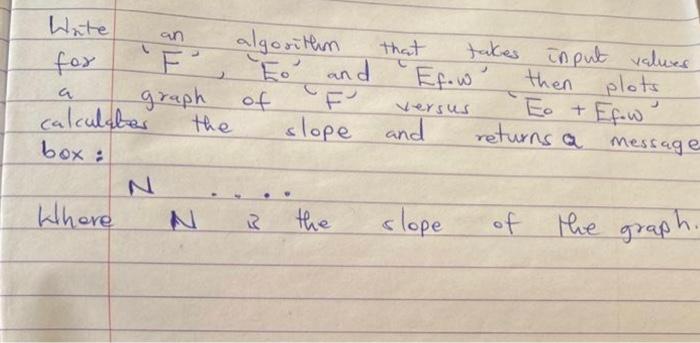 Write an algorithm that takes input values
for 'F', 'Eo' and 'Ef.w' then plots
a graph of 'F' versus 'Eo + Ef.w'
calculates the slope and returns a message
box :
N . . . . .
Where N is the slope of the graph.